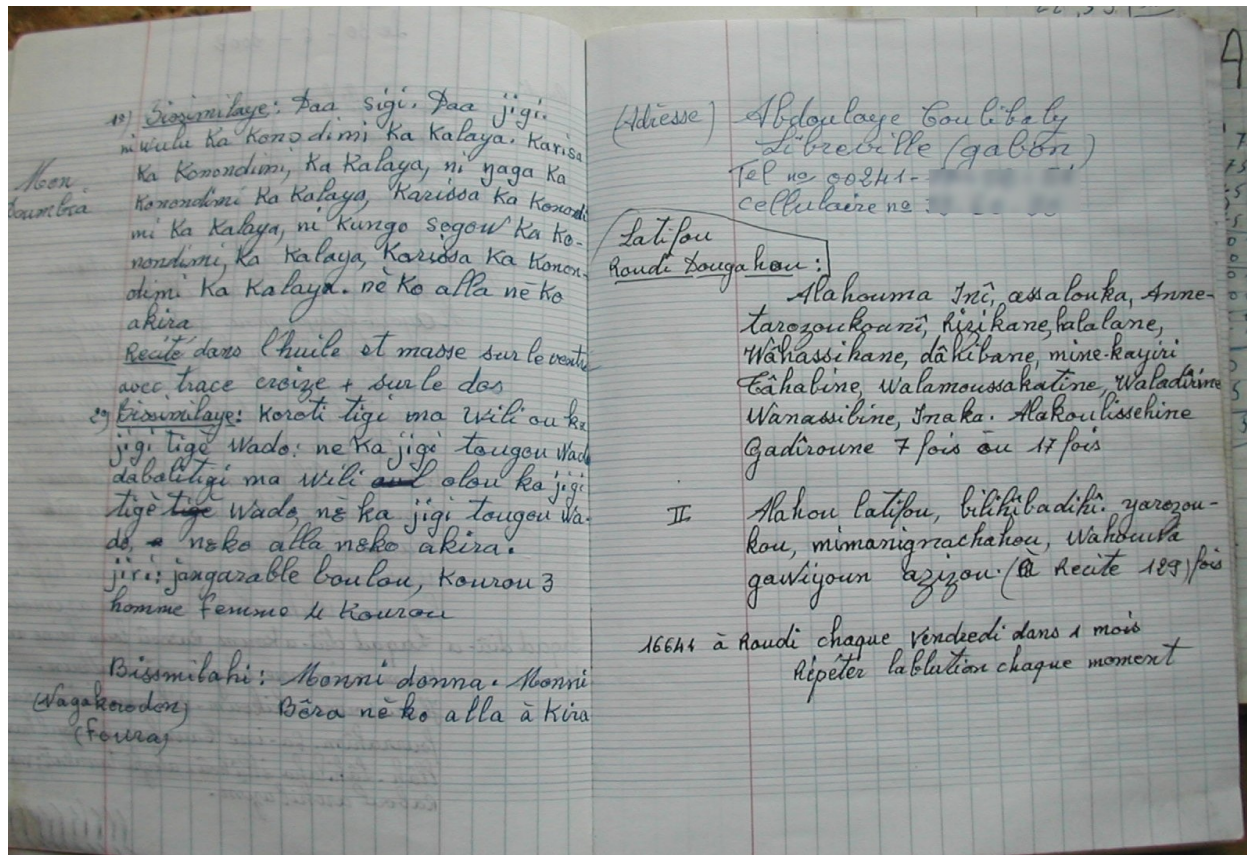 1º) Bissimilaye: Daa sigi. Daa jigi.
ni wulu Ka Konodimi Ka Kalaya. Karisa
Ka Konondimi, Ka Kalaya, ni ŋaga Ka
Mon
Soumbia
Konondimi Ka Kalaya, Karissa Ka Konondi
mi Ka Kalaya, ni Kungo sogow Ka Ko-
nondimi, Ka Kalaya, Karissa Ka Konon-
dimi Ka Kalaya. nè Ko alla nè Ko
akira
Recité dans l'huile et masse sur le ventre
avec trace croize + sur le dos
2º) Bissimilaye: Koroti tigi ma wili ou ka
jigi tigè Wado: ne Ka jigi tougou Wado
dabalitigi ma wili olou ka jigi
tigè Wado, nè ka jigi tougou Wa-
do, nèko alla nèko akira.
jiri: jangarable boulou, Kourou 3
homme femme 4 Kourou
Bissmilahi: Monni donna. Monni
(Nagakorodon) Bôra nè ko alla à Kira
(Foura)
(Adresse) Abdoulaye Coulibaly
Libreville (gabon)
Tel nº 00241-
cellulaire nº
Latifou
Raudi Dougahou:
Alahouma Inî, assalouka, Anne-
tarozoukounî, Rizikane, halalane,
Wâhassihane, dâhibane, mine-kayiri
Tâhabine, Walamoussakatine, Waladirine
Wanassibine, Inaka. Alakoulissehine
Gadîroune 7 fois ou 17 fois
II Alahou latifou, bilihibadihî. yarozou-
kou, mimanignachahou, Wahouwa
gawiyoun azizou. (à Recite 129) fois
16641 à Raudi chaque Vendredi dans 1 mois
Répéter lablution chaque moment